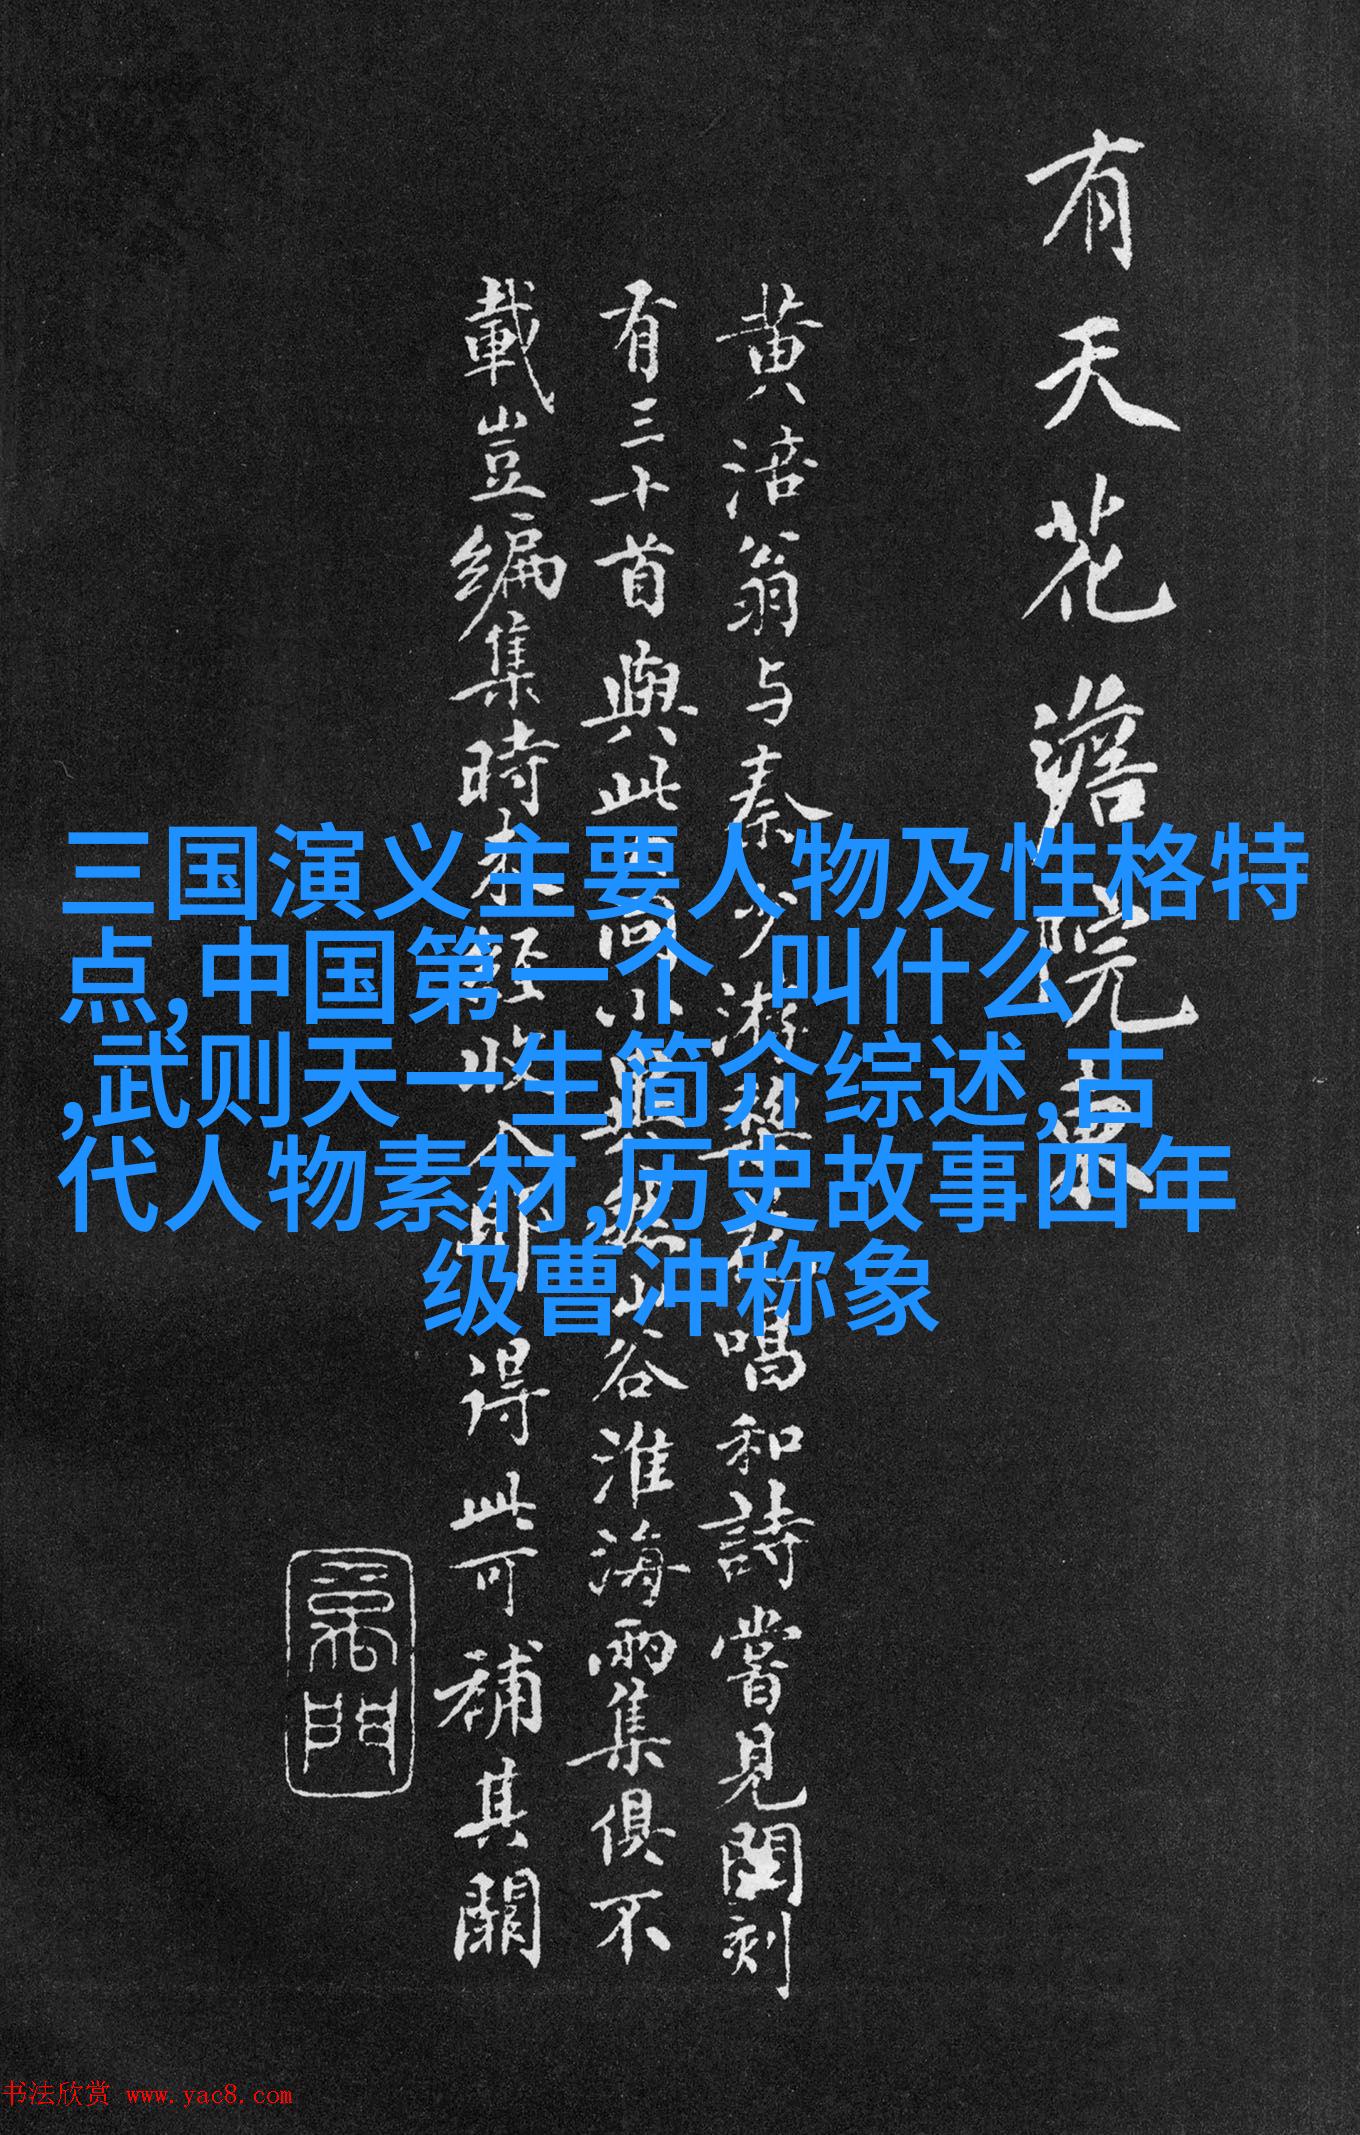 有天花
黄涪翁与秦少游
唱和詩嘗見閣刻
有三十首與此
谷淮海兩集俱不
載豈編集時未經收入耶
得此可補其闕
三国演义主要人物及性格特
点,中国第一个 叫什么
,武则天一生简介综述,古
代人物素材,历史故事四年
级曹冲称象
书法欣赏 www.yac8.com